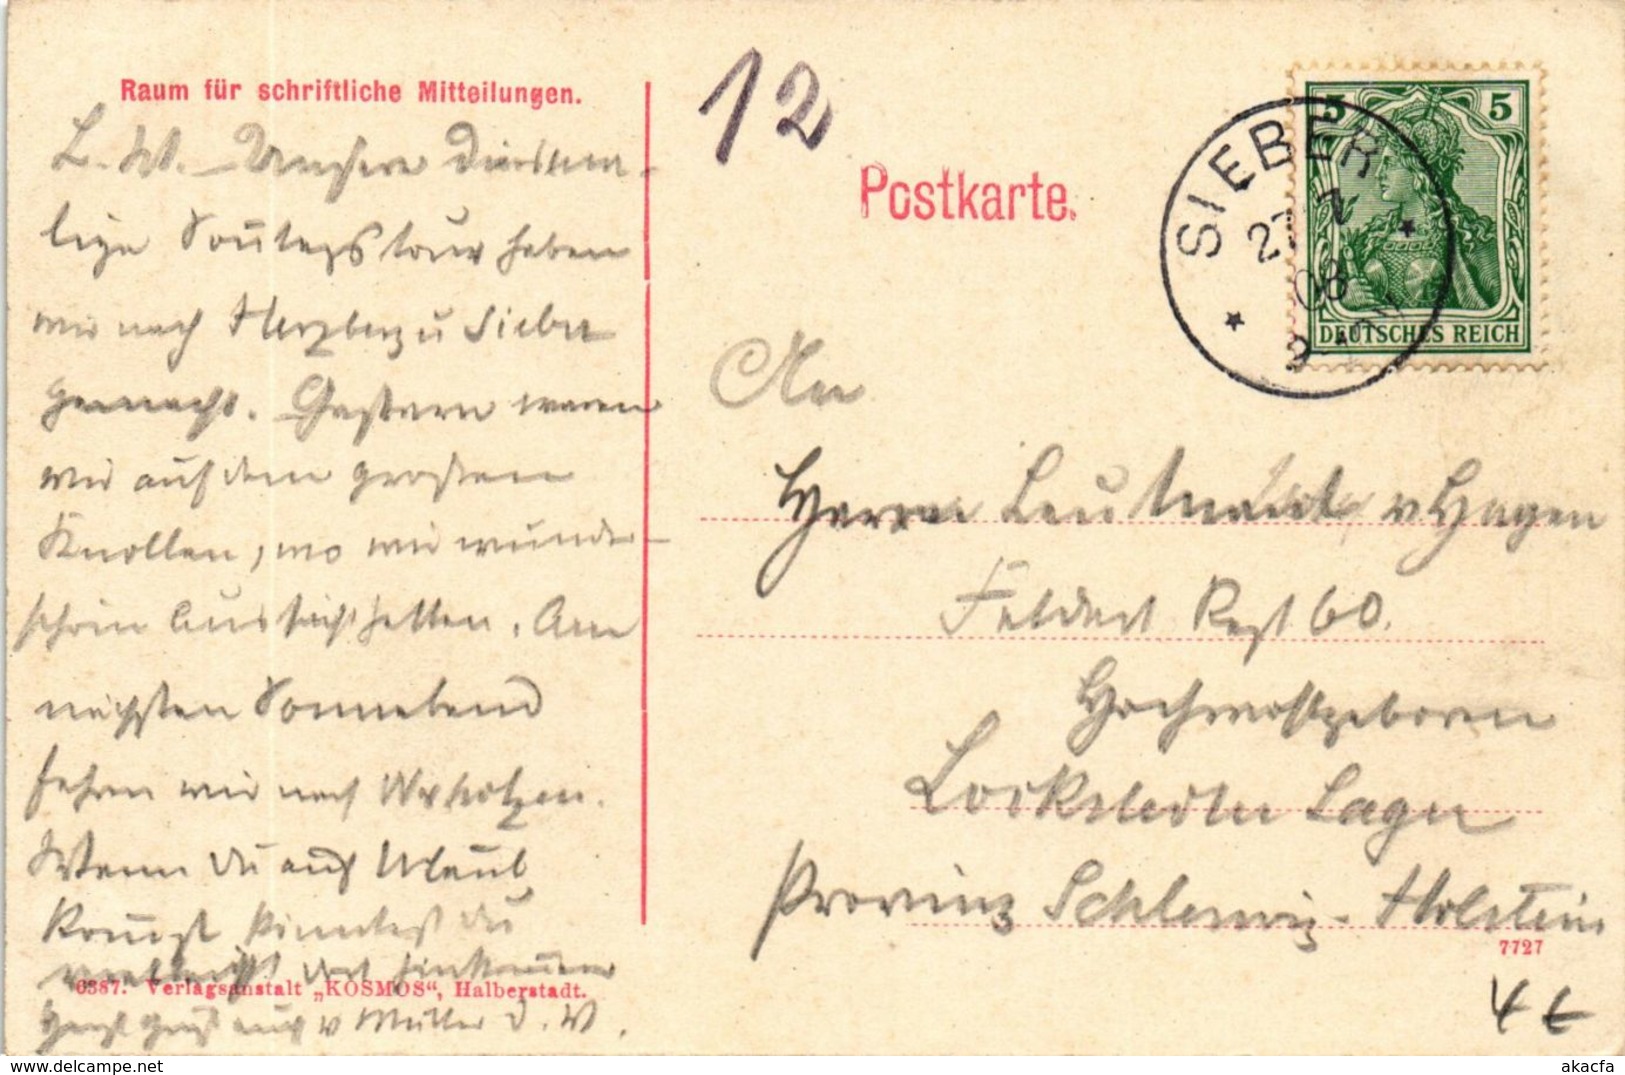 Raum für schriftliche Mitteilungen.
L. W. – Unsere diesma-
lige Sonntagstour haben
wir nach Herzberg u Sieber
gemacht. Gestern waren
wir auf dem großen
Knollen, wo wir wunder-
schöne Aussicht hatten. Am
nächsten Sonnabend
fahren wir nach
Wenn du auf Urlaub
kommst könntest du
vielleicht dort hinkommen
Herzl Gruß auch v Mutter D. V.
6387. Verlagsanstalt „KOSMOS“, Halberstadt.
12
Postkarte.
5 5
DEUTSCHES REICH
SIEBER
27 7
08
An
Herrn Leutnant v Hagen
Feldart Regt 60.
Hochwohlgeboren
Lockstedter Lager
Provinz Schleswig-Holstein
7727
4 €
akacfa